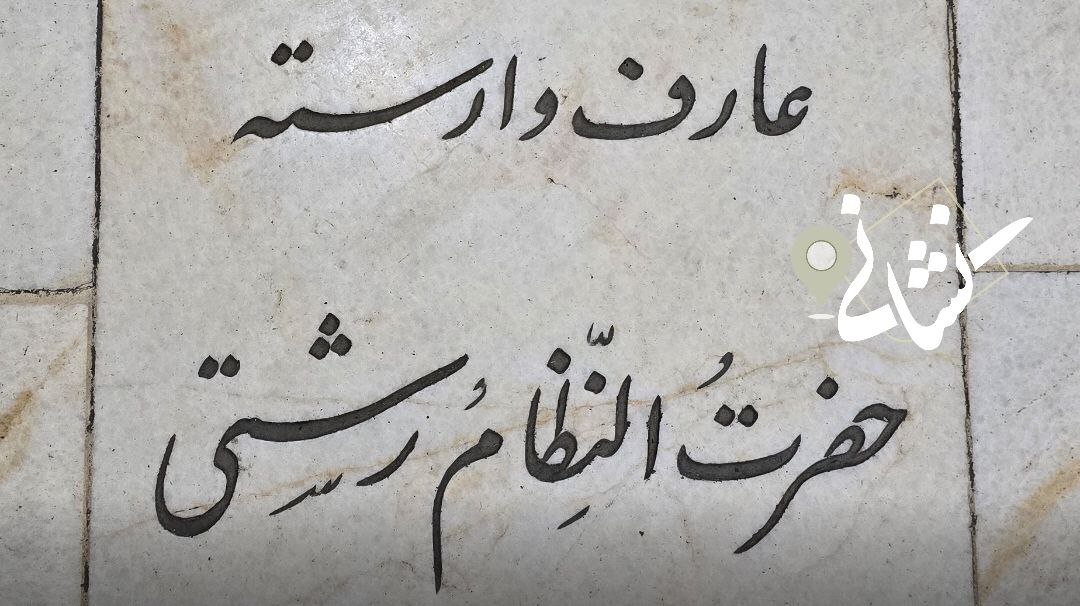 عارف وارسته
نشانی
حضرتُ النِّظامُ رشتی